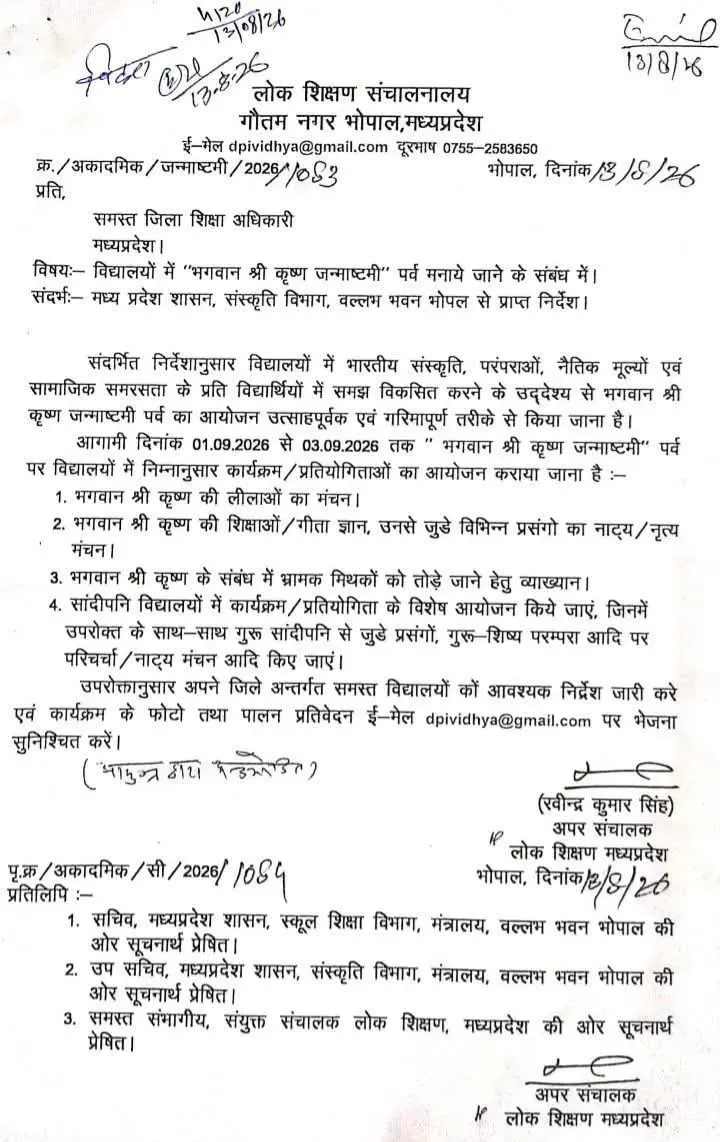 4120
13/08/26
13.8.26
13/8/26
लोक शिक्षण संचालनालय
गौतम नगर भोपाल,मध्यप्रदेश
ई–मेल dpividhya@gmail.com दूरभाष 0755–2583650
क्र./अकादमिक/जन्माष्टमी/2026/1083 भोपाल, दिनांक 13/8/26
प्रति,
समस्त जिला शिक्षा अधिकारी
मध्यप्रदेश।
विषयः– विद्यालयों में "भगवान श्री कृष्ण जन्माष्टमी" पर्व मनाये जाने के संबंध में।
संदर्भः– मध्य प्रदेश शासन, संस्कृति विभाग, वल्लभ भवन भोपल से प्राप्त निर्देश।
संदर्भित निर्देशानुसार विद्यालयों में भारतीय संस्कृति, परंपराओं, नैतिक मूल्यों एवं
सामाजिक समरसता के प्रति विद्यार्थियों में समझ विकसित करने के उद्देश्य से भगवान श्री
कृष्ण जन्माष्टमी पर्व का आयोजन उत्साहपूर्वक एवं गरिमापूर्ण तरीके से किया जाना है।
आगामी दिनांक 01.09.2026 से 03.09.2026 तक " भगवान श्री कृष्ण जन्माष्टमी" पर्व
पर विद्यालयों में निम्नानुसार कार्यक्रम/प्रतियोगिताओं का आयोजन कराया जाना है :–
1. भगवान श्री कृष्ण की लीलाओं का मंचन।
2. भगवान श्री कृष्ण की शिक्षाओं/गीता ज्ञान, उनसे जुडे विभिन्न प्रसंगो का नाट्य/नृत्य
मंचन।
3. भगवान श्री कृष्ण के संबंध में भ्रामक मिथकों को तोड़े जाने हेतु व्याख्यान।
4. सांदीपनि विद्यालयों में कार्यक्रम/प्रतियोगिता के विशेष आयोजन किये जाएं, जिनमें
उपरोक्त के साथ–साथ गुरू सांदीपनि से जुडे प्रसंगों, गुरू–शिष्य परम्परा आदि पर
परिचर्चा/नाट्य मंचन आदि किए जाएं।
उपरोक्तानुसार अपने जिले अन्तर्गत समस्त विद्यालयों कों आवश्यक निर्द्रेश जारी करे
एवं कार्यक्रम के फोटो तथा पालन प्रतिवेदन ई–मेल dpividhya@gmail.com पर भेजना
सुनिश्चित करें।
(आयुक्त द्वारा अनुमोदित)
(रवीन्द्र कुमार सिंह)
अपर संचालक
लोक शिक्षण मध्यप्रदेश
पृ.क्र/अकादमिक/सी/2026/1084 भोपाल, दिनांक 13/8/26
प्रतिलिपि :–
1. सचिव, मध्यप्रदेश शासन, स्कूल शिक्षा विभाग, मंत्रालय, वल्लभ भवन भोपाल की
ओर सूचनार्थ प्रेषित।
2. उप सचिव, मध्यप्रदेश शासन, संस्कृति विभाग, मंत्रालय, वल्लभ भवन भोपाल की
ओर सूचनार्थ प्रेषित।
3. समस्त संभागीय, संयुक्त संचालक लोक शिक्षण, मध्यप्रदेश की ओर सूचनार्थ
प्रेषित।
अपर संचालक
लोक शिक्षण मध्यप्रदेश